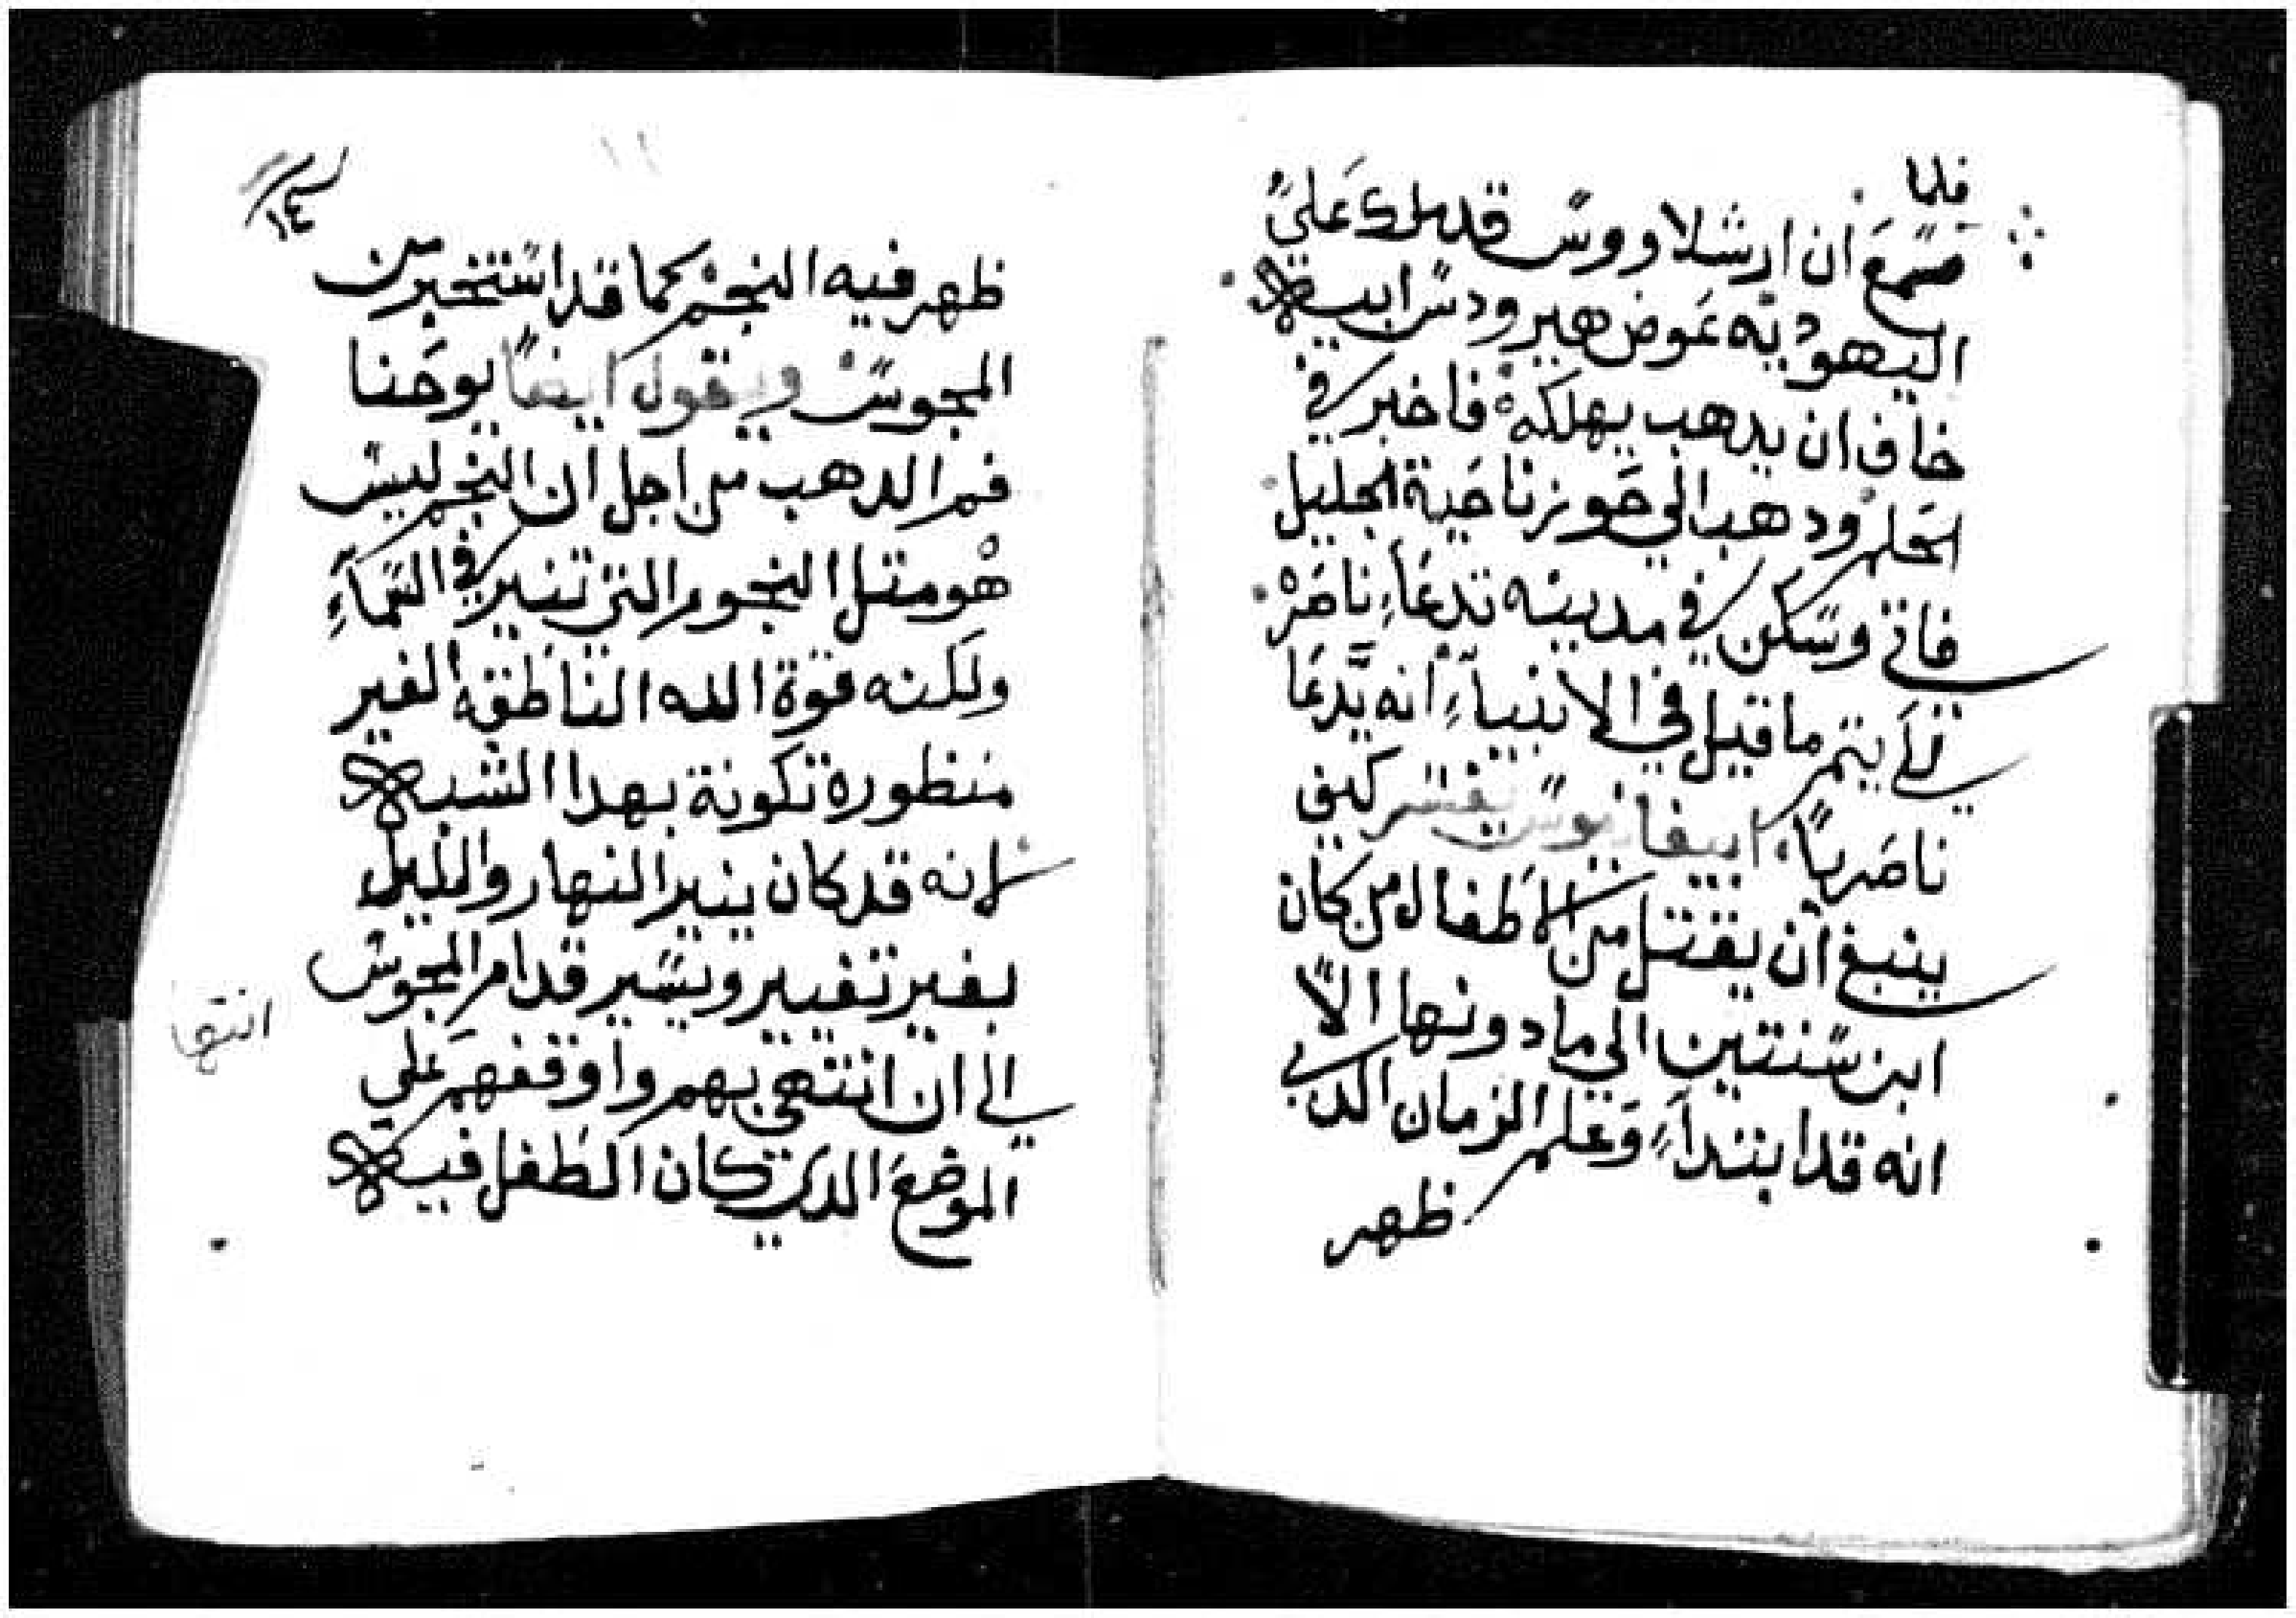 فلما
سمع ان ارشلاووس قد ملك علي
اليهوديه عوض هيرودس ابيه
خاف ان يدهب يهلكه فاخبر في
الحلم ودهب الي حوز ناحية الجليل
فاتي وسكن في مدينه تدعاء ناصره
لكي يتم ما قيل في الانبياء انه يدعا
ناصريا ابيفانيوس يفسر كيف
ينبغي ان يقتل من الاطفال من كان
ابن سنتين الي ما دونها الا
انه قد ابتداء وعلم الزمان الدي
ظهر
١٤
ظهر فيه النجم كما قد استخبر من
المجوس ويقول ايضا يوحنا
فم الدهب من اجل ان النجم ليس
هو متل النجوم التي تنير في السماء
ولكنه قوة الله الناطقه الغير
منظورة تكونة بهدا الشبه
لانه قد كان ينير النهار والليل
بغير تغيير ويسير قدام المجوس
الي ان انتهي بهم واوقفهم علي
الموضع الدي كان الطفل فيه
انتها